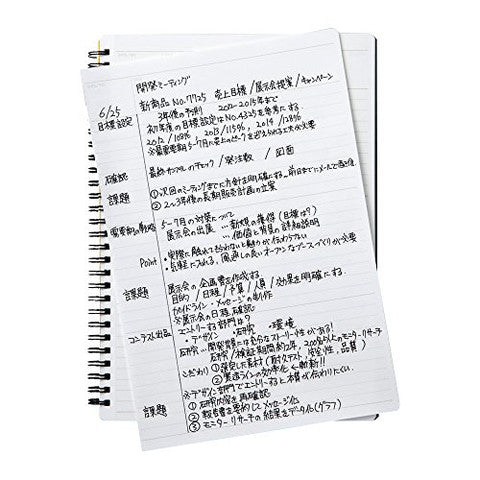 開発ミーティング
6/25 新商品 No.7725 売上目標/展示会提案/キャンペーン
目標設定 3年後の予測 2012〜2015年まで
初年度の目標設定はNo.4325を参考にする
2012/108%, 2013/115%, 2014/128%
※最重要期 5〜7月に売上のピークを迎えられる工夫が必要
確認 最終サンプルのチェック/発注数/図面
課題 ①次回のミーティングまでに方針を明確にする。前日までにメールで
②2〜3年後の長期販売計画の立案
5〜7月の対策について
展示会の出展 … 新規の獲得(目標は?)
… 価値と背景の詳細説明
Point ・実際に触れてもらわないと魅力が伝わらない
・気軽に入れる、風通しの良いオープンなブースづくりが必要
課題 展示会の企画書を作成する
目的/日程/予算/人員/効果を明確にする。
ガイドライン・メッセージの制作
※展示会の日程確認
コンテスト出品 エントリーする部門は?
・デザイン ・研究 ・環境
研究 … 開発背景には充分なストーリー性がある!
研究/検証期間約2年, 200名以上のモニターリサーチ
こだわり ①選定した素材(耐久テスト, 安全性, 品質)
②製造ラインの効率化 ←斬新!!
※デザイン部門でエントリーすると本質が伝わりにくい。
課題 ①研究内容を再確認
②報告書を要約してメッセージ化
③モニターリサーチの結果をデータ化(グラフ)